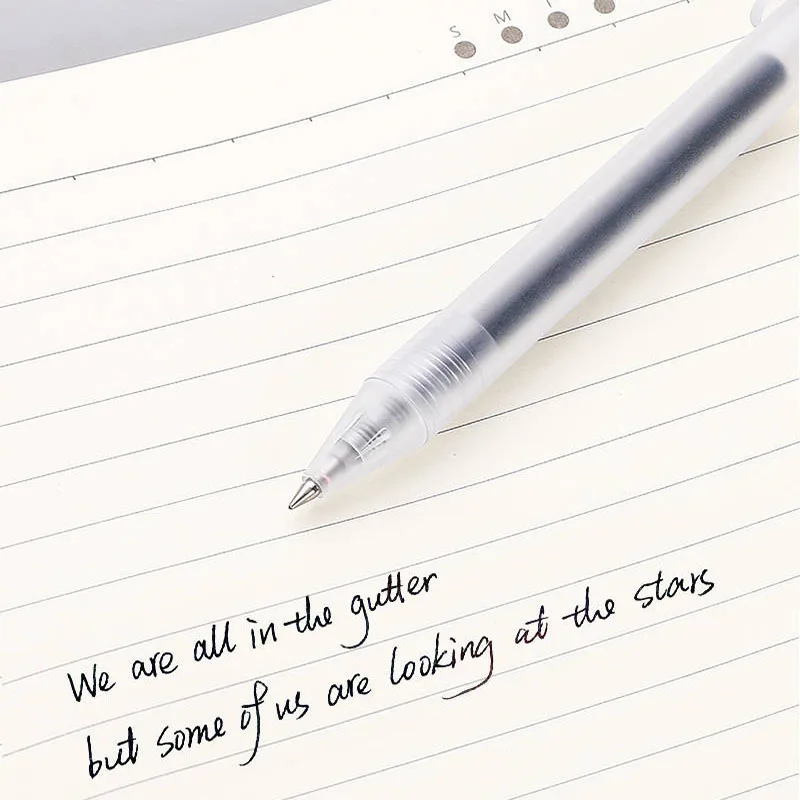 S M T
We are all in the gutter
but some of us are looking at the stars